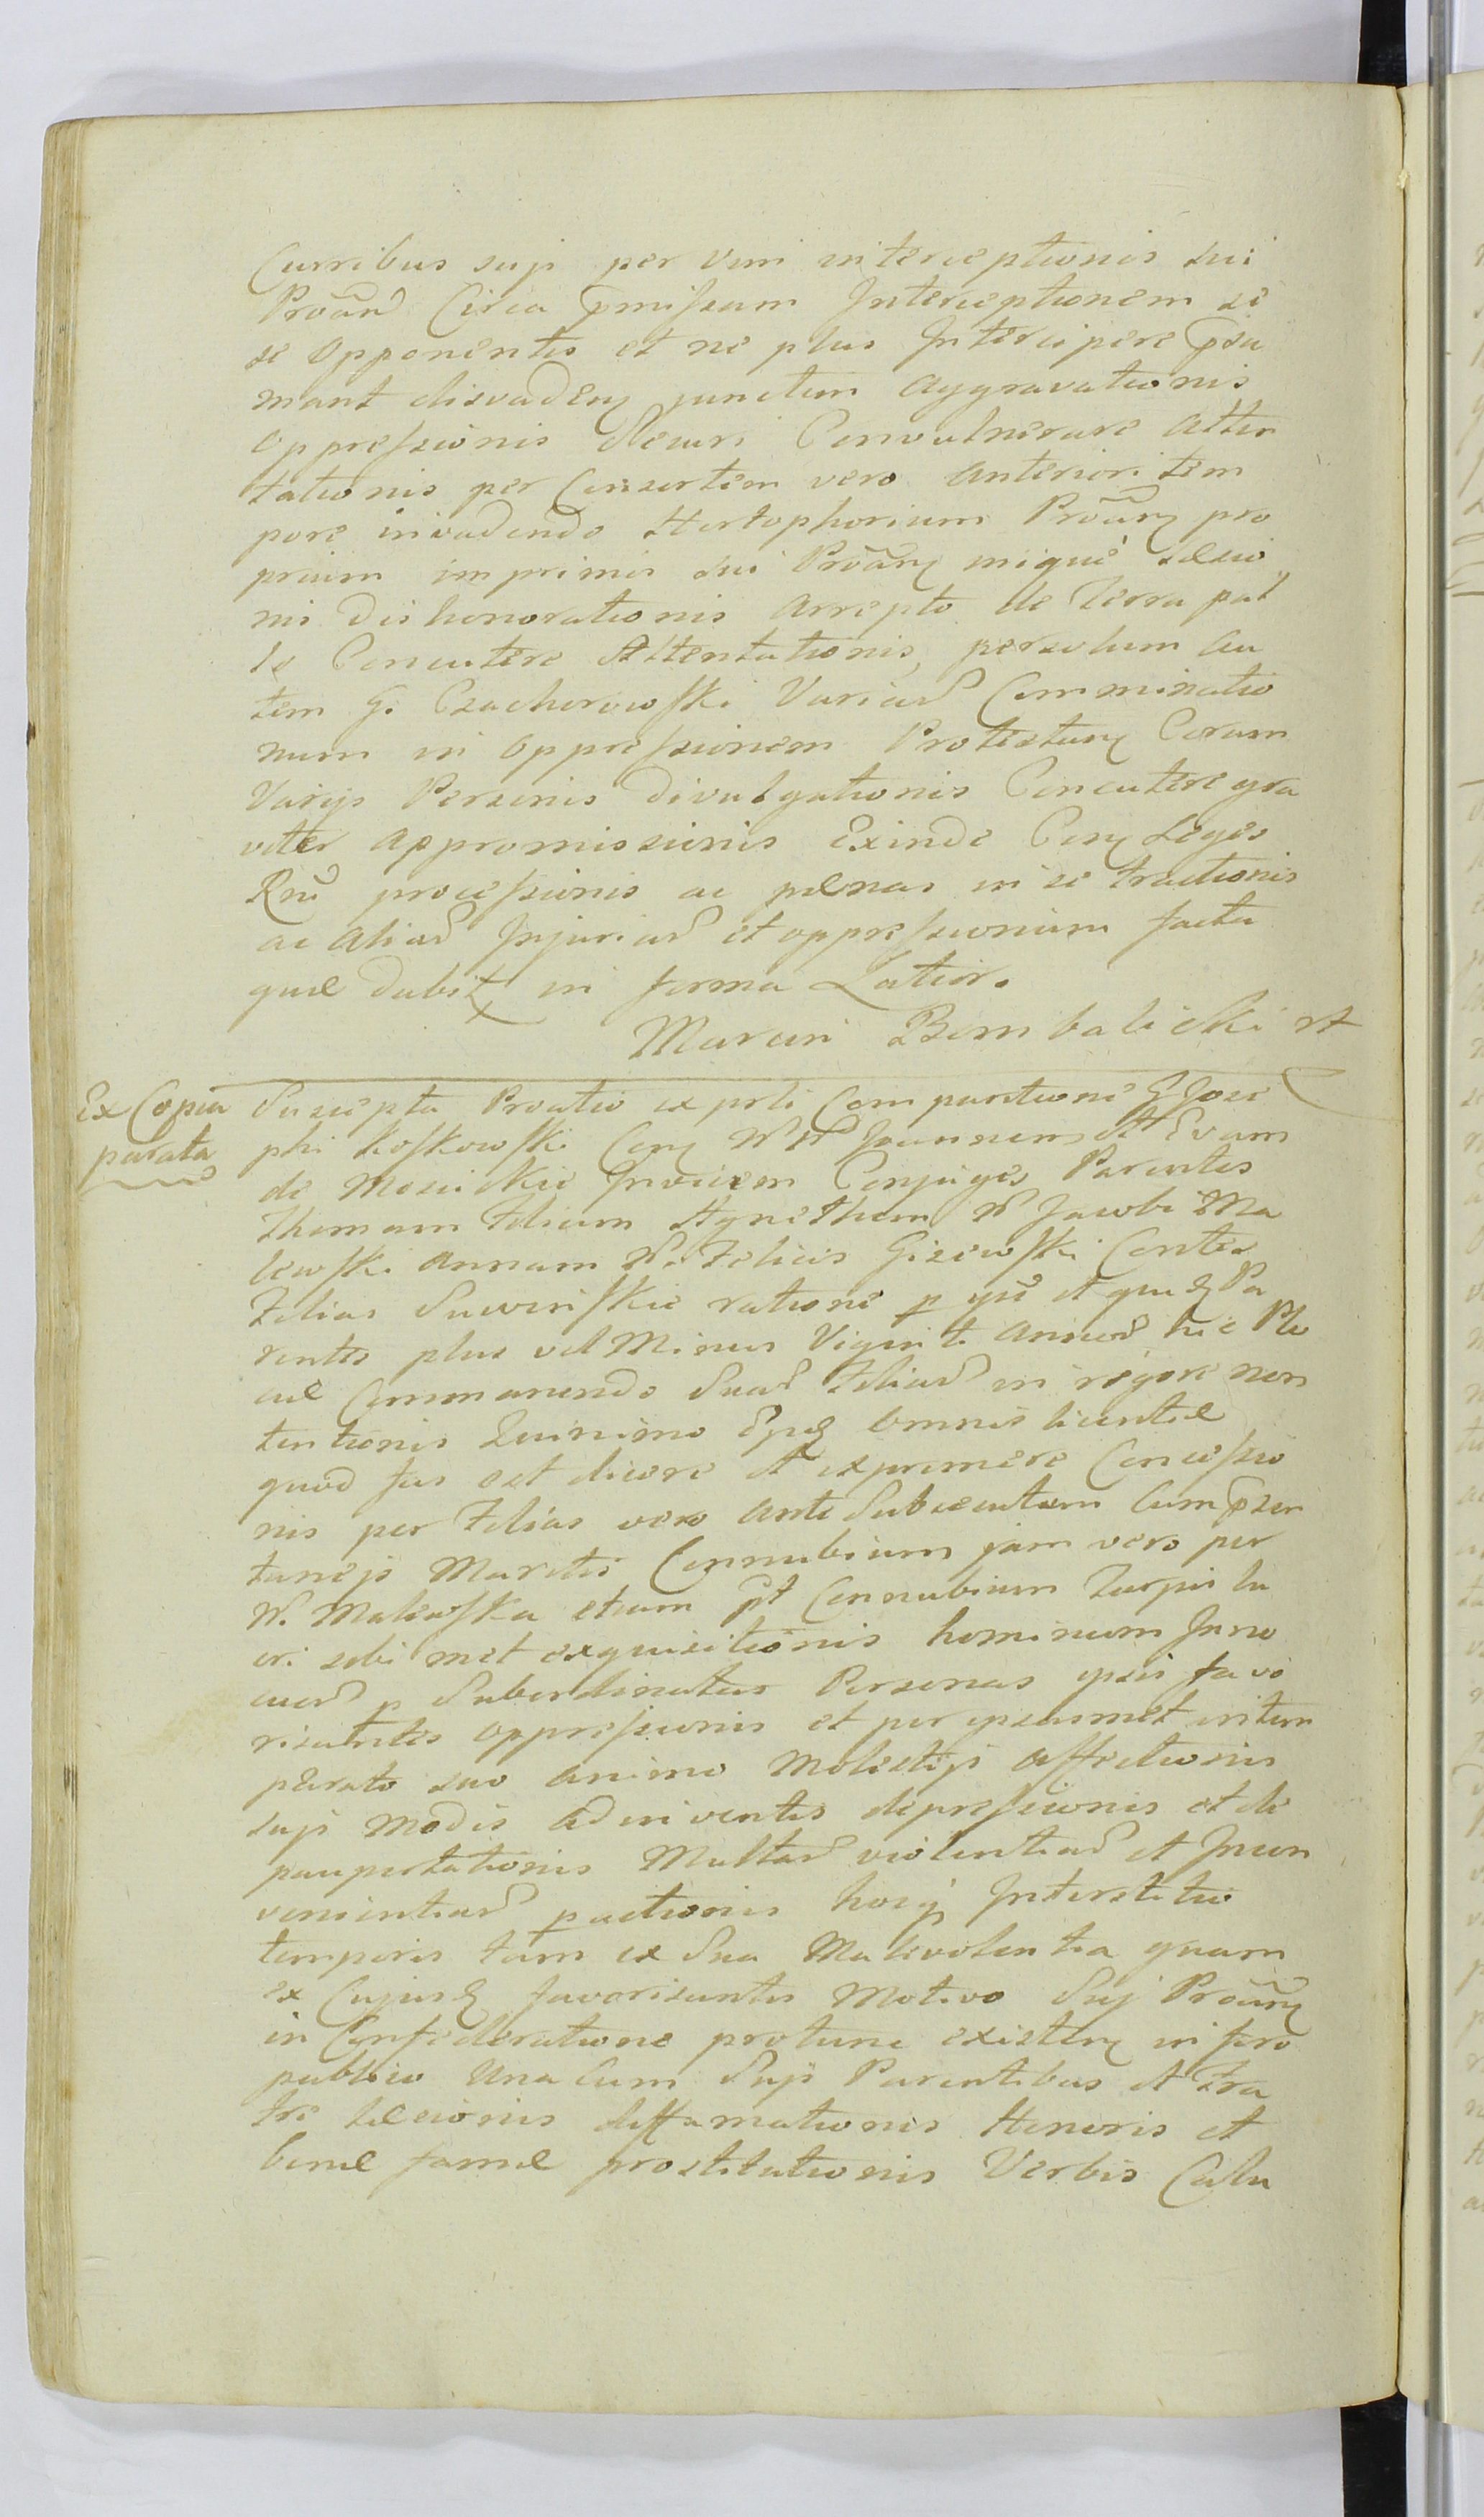 Curribus suji per Vim interceptionis sui
Proãn Circa p̃missam Interceptionem se
se opponentis et ne plus Intercipere p̃su
mant disvaden junctim aggravationis
oppressionis Convulnerare atten
tationis per Consortem vero anteriori tem
pore invadendo Hortophorium Proãn pro
prium imprimis sui Proãn inique læsio
nis dishonorationis arrepto de Terra pal
lo Concutere Attentationis, persolum au
tem G. Czachorowski Variar Comminatio
num in oppressionem Protestan Coram
Varijs Personis divulgationis Concutere gra
viter appromissionis Exinde Con Leges
Rni processionis ac pænas in se tractionis
ac aliar Injuriar et oppressionum facta
quæ dabit in forma Latior.
Marcin Bombalicki
Ex Copia
parata
Suscepta Proatio ex prti Comparitione G Jose
phi Koskowski Con WW Joannem et Evam
de Mosickie Invicem Conjuges Parentes
Thomam Filium Agnetham W Jacobi Ma
lewski Annam W. Felicis Gizowski Contes
Filias Suwinskie ratione p quod et quia Pa
rentes plus vel Minus Viginti annor hic Plo
cæ Commanendo Suar Filiar in rigore non
tentionis Quinimo omnis licentiæ
quod fas est dicere et exprimere Concessio
nis per Filias vero ante Subsecutum Cum p̃sen
tanejs Maritis Connubium jam vero per
W. Malewska etiam pt Connubium Turpis lu
cri sibi met exquisitionis hominum Inno
cuor p Subordinatas Personas ipsis favo
risantes oppressionis et per ipsasmet intem
perato suo animo Molestijs affectionis
suji modis adinventis depressionis et de
paupertationis Multar violentiar et Incon
venientiar pactionis hocq Interstitio
temporis tam ex Sua Malevolentia quam
ex Cujus favorisantis Motivo Suj Proãn
in Confæderatione protunc existen in foro
publico Una Cum Sujs Parentibus et Fra
tre læsionis diffamationis Honoris et
bonæ famæ prostitutionis Verbis Calu